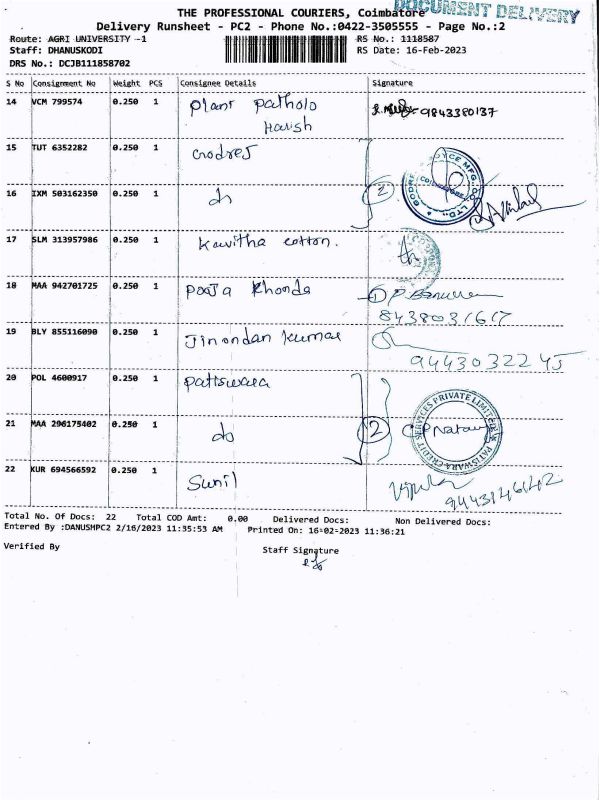 DOCUMENT DELIVERY
THE PROFESSIONAL COURIERS, Coimbatore
Delivery Runsheet - PC2 - Phone No.:0422-3505555 - Page No.:2
Route: AGRI UNIVERSITY -1 RS No.: 1118587
Staff: DHANUSKODI RS Date: 16-Feb-2023
DRS No.: DCJB111858702
S No Consignment No Weight PCS Consignee Details Signature
14 VCM 799574 0.250 1 Plant Patholo 9843380137
Harish
15 TUT 6352282 0.250 1 Godrej
16 IXM 503162350 0.250 1 do 2
17 SLM 313957986 0.250 1 Kavitha cotton.
18 MAA 942701725 0.250 1 Pooja Khonda 1
8438031617
19 BLY 855116090 0.250 1 Jinondan kumar
9443032245
20 POL 4600917 0.250 1 Patiswara
SERVICES PRIVATE LIMITED PATISWARA CREDIT
21 MAA 296175402 0.250 1 do 2
22 KUR 694566592 0.250 1 Sunil
9443146142
Total No. Of Docs: 22 Total COD Amt: 0.00 Delivered Docs: Non Delivered Docs:
Entered By :DANUSHPC2 2/16/2023 11:35:53 AM Printed On: 16-02-2023 11:36:21
Verified By Staff Signature